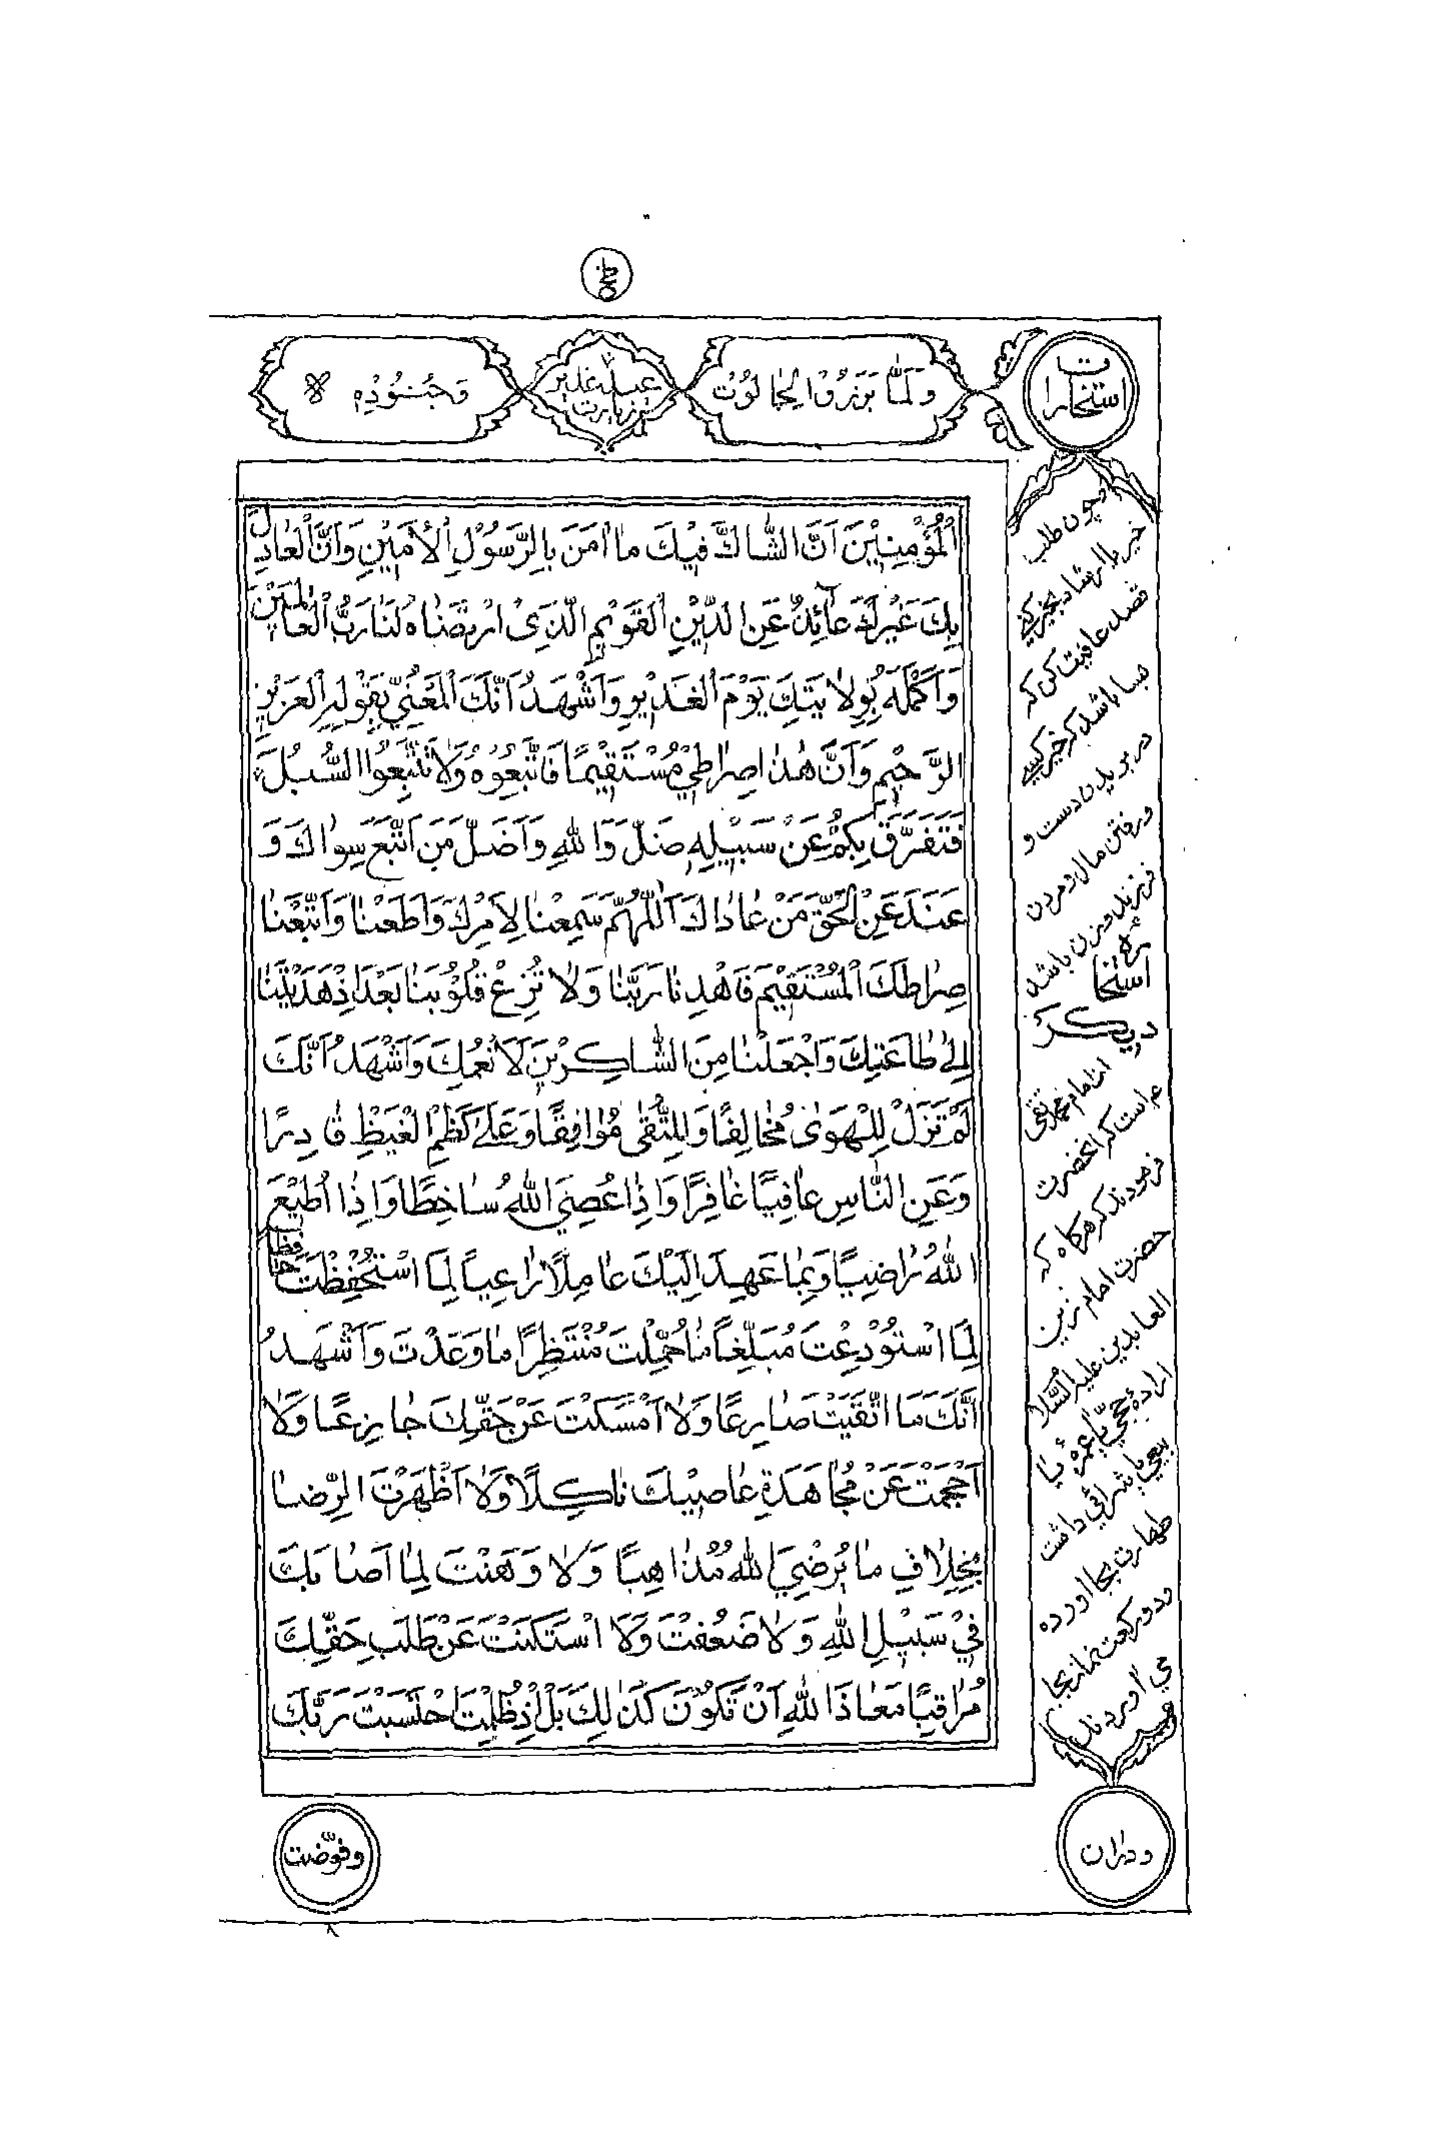 استخارات
وَلَمَّا بَرَزُوا لِجَالُوْتَ
زیارت عید غدیر
وَجُنُوْدِهٖ لا
اَلْمُؤْمِنِيْنَ اَنَّ الشَّاكَّ فِيْكَ مَا اٰمَنَ بِالرَّسُوْلِ اْلاَمِيْنِ وَاَنَّ الْعَادِلَ
بِكَ غَيْرَكَ عَآئِدٌ عَنِ الدِّيْنِ الْقَوِيْمِ الَّذِىْ ارْتَضَاهُ لَنَا رَبُّ الْعَالَمِيْنَ
وَاَكْمَلَهُ بِوِلَايَتِكَ يَوْمَ الْغَدِيْرِ وَاَشْهَدُ اَنَّكَ الْمَعْنِيُّ بِقَوْلِهِ الْعَزِيْزِ
الرَّحِيْمِ وَاَنَّ هٰذَا صِرَاطِيْ مُسْتَقِيْمًا فَاتَّبِعُوْهُ وَلَا تَتَّبِعُوا السُّبُلَ
فَتَفَرَّقَ بِكُمْ عَنْ سَبِيْلِهِ ضَلَّ وَاللهِ وَاَضَلَّ مَنِ اتَّبَعَ سِوَاكَ وَ
عَنَدَ عَنِ الْحَقِّ مَنْ عَادَاكَ اَللّٰهُمَّ سَمِعْنَا لِاَمْرِكَ وَاَطَعْنَا وَاتَّبَعْنَا
صِرَاطَكَ الْمُسْتَقِيْمَ فَاهْدِنَا رَبَّنَا وَلَا تُزِغْ قُلُوْبَنَا بَعْدَ اِذْ هَدَيْتَنَا
اِلٰى طَاعَتِكَ وَاجْعَلْنَا مِنَ الشَّاكِرِيْنَ لِاَنْعُمِكَ وَاَشْهَدُ اَنَّكَ
لَمْ تَزَلْ لِلْهَوٰى مُخَالِفًا وَلِلتُّقٰى مُوَافِقًا وَعَلٰى كَظْمِ الْغَيْظِ قَادِرًا
وَعَنِ النَّاسِ عَافِيًا غَافِرًا وَاِذَا عُصِيَ اللهُ سَاخِطًا وَاِذَا اُطِيْعَ
اللهُ رَاضِيًا وَبِمَا عَهِدَ اِلَيْكَ عَامِلًا رَاعِيًا لِمَا اسْتُحْفِظْتَ حَافِظًا
لِمَا اسْتُوْدِعْتَ مُبَلِّغًا مَا حُمِّلْتَ مُنْتَظِرًا مَا وُعِدْتَ وَاَشْهَدُ
اَنَّكَ مَا اتَّقَيْتَ ضَارِعًا وَلَا اَمْسَكْتَ عَنْ حَقِّكَ جَازِعًا وَلَا
اَحْجَمْتَ عَنْ مُجَاهَدَةِ عَاصِيْكَ نَاكِلًا وَلَا اَظْهَرْتَ الرِّضَا
بِخِلَافِ مَا يُرْضِيَ اللهَ مُدَاهِنًا وَلَا وَهَنْتَ لِمَا اَصَابَكَ
فِيْ سَبِيْلِ اللهِ وَلَا ضَعُفْتَ وَلَا اسْتَكَنْتَ عَنْ طَلَبِ حَقِّكَ
مُرَاقِبًا مَعَاذَ اللهِ اَنْ تَكُوْنَ كَذٰلِكَ بَلْ اِذْ ظُلِمْتَ احْتَسَبْتَ رَبَّكَ
چون طلب
قصد عافیت کن که
بسا باشد که خیر کسے
در بریدن دست و
و رفتن مال و مردن
فرزند و زن باشد
استخارۂ
دیگر
از امام محمد تقی
ع است که آنحضرت
فرمودند که هرگاه که
حضرت امام زین
العابدین علیه السّلام
ارادۂ حجّی یا عمرۂ یا
بیعی یا شرائی داشت
طهارت بجا آورده
و دو رکعت نماز بجا
می آوردند
و دران
وفوّضت